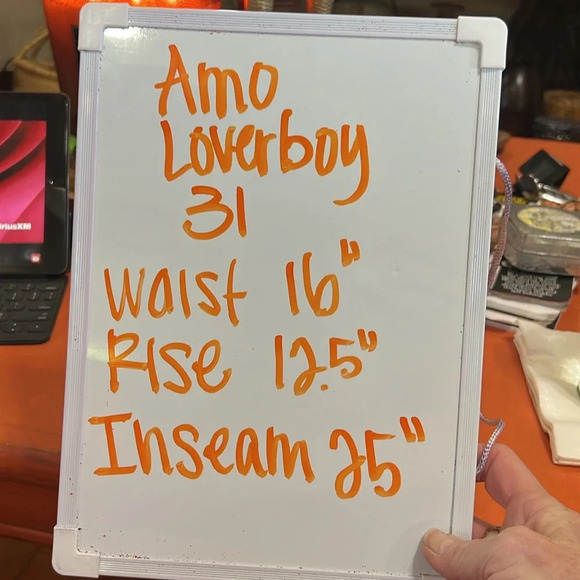 Amo
Loverboy
31
Waist 16"
Rise 12.5"
Inseam 25"
iriusXM